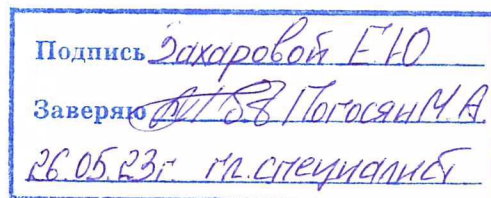 Подпись Захаровой Е Ю
Заверяю Погосян М.А.
26.05.23г. гл.специалист